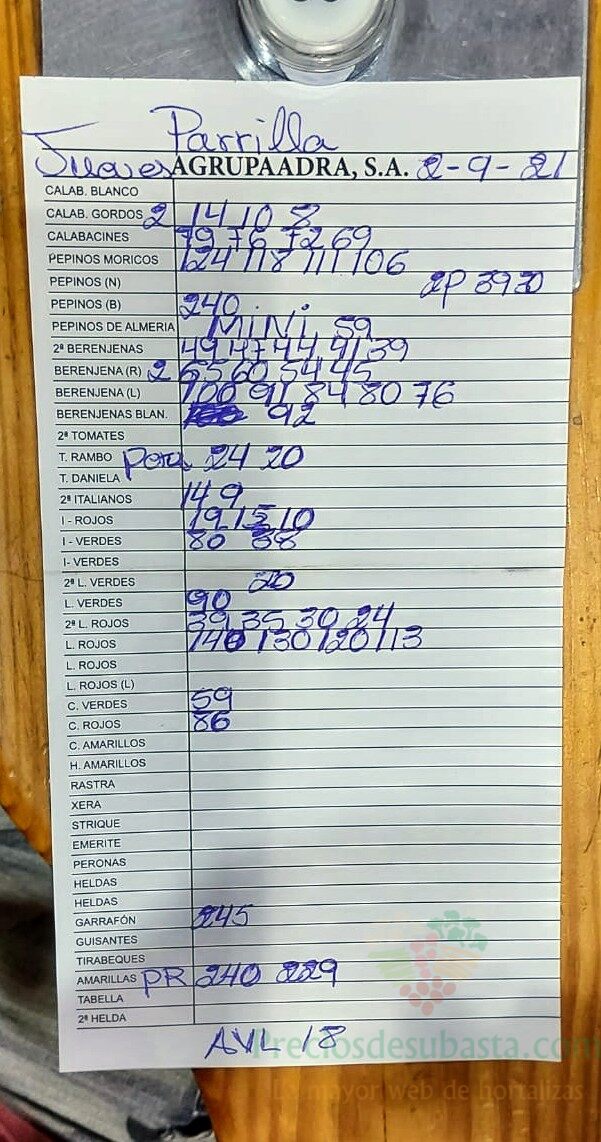 Parrilla
Jueves AGRUPAADRA, S.A. 2-9-21
CALAB. BLANCO
CALAB. GORDOS 2 14 10 8
CALABACINES 79 76 72 69
PEPINOS MORICOS 124 118 111 106
PEPINOS (N) 2P 39 20
PEPINOS (B) 240
PEPINOS DE ALMERIA MINI 59
2ª BERENJENAS 49 47 44 41 39
BERENJENA (R) 2 65 60 54 45
BERENJENA (L) 100 91 84 80 76
BERENJENAS BLAN. 92
2ª TOMATES
T. RAMBO Pera 24 20
T. DANIELA
2ª ITALIANOS 14 9
I - ROJOS 19 15 10
I - VERDES 80 38
I- VERDES
2ª L. VERDES 20
L. VERDES 90
2ª L. ROJOS 39 35 30 24
L. ROJOS 140 130 120 113
L. ROJOS
L. ROJOS (L)
C. VERDES 59
C. ROJOS 86
C. AMARILLOS
H. AMARILLOS
RASTRA
XERA
STRIQUE
EMERITE
PERONAS
HELDAS
HELDAS
GARRAFÓN 245
GUISANTES
TIRABEQUES
AMARILLAS PR 240 229
TABELLA
2ª HELDA
AVL 18
Preciosdesubasta.com
La mayor web de hortalizas